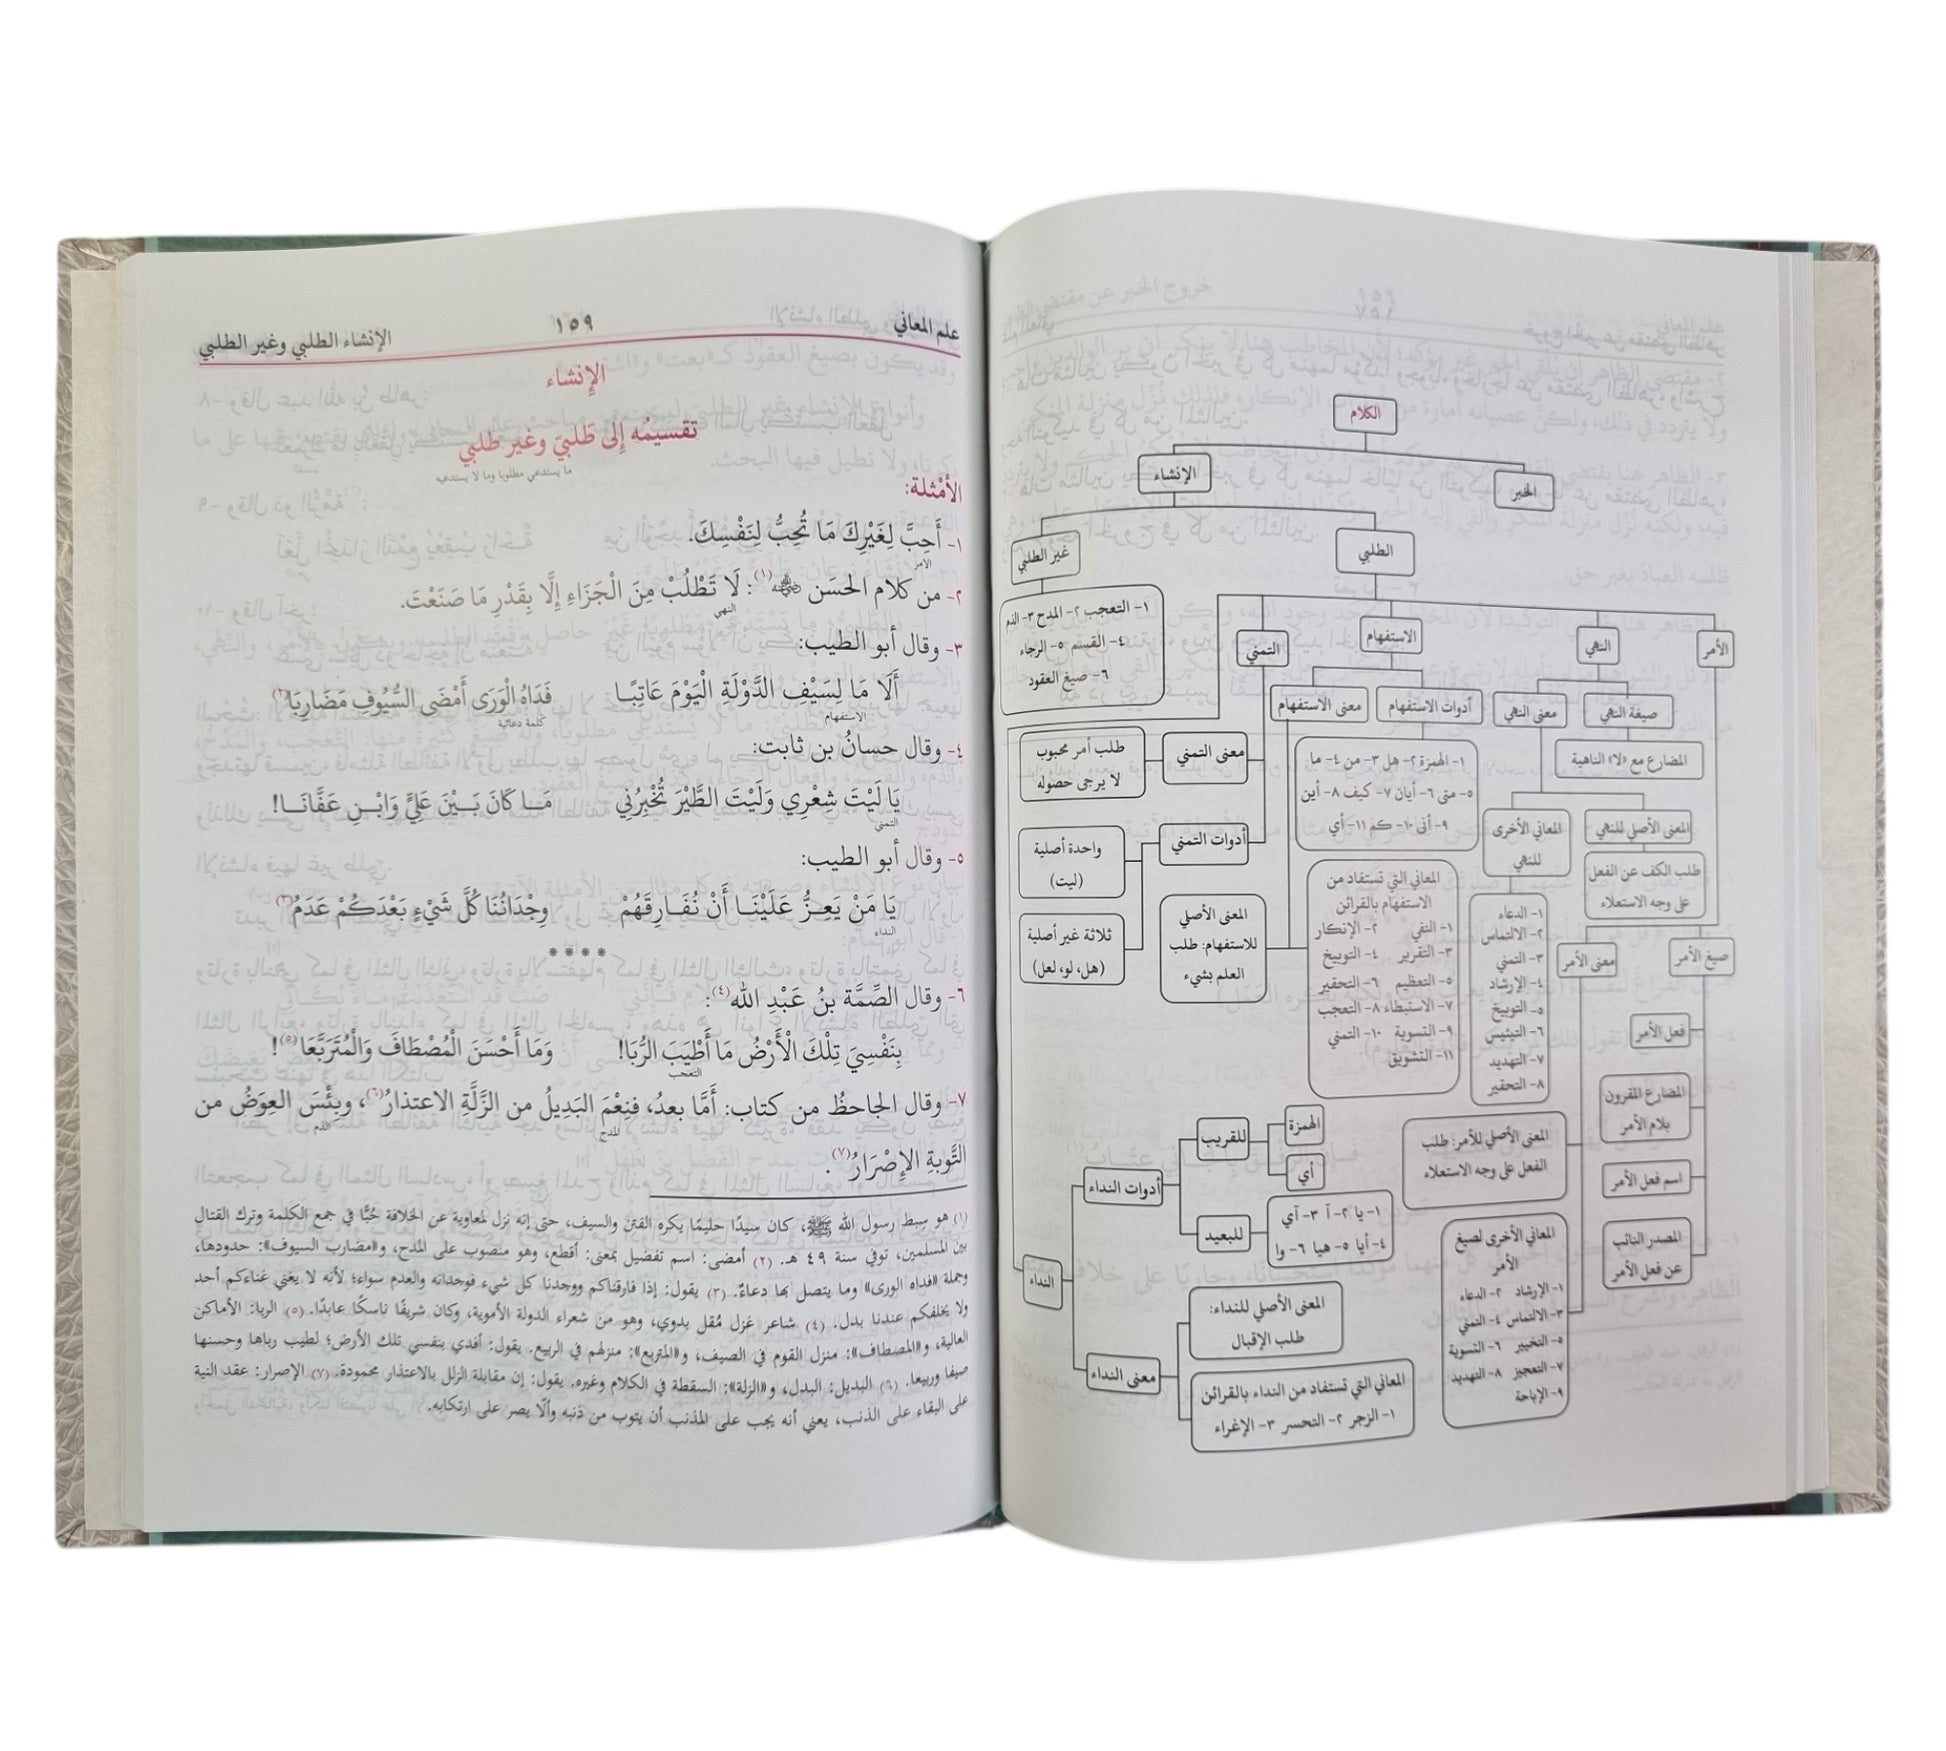 الكلام
الخبر
الإنشاء
الطلبي
غير الطلبي
١- التعجب ٢- المدح ٣- الذم
٤- القسم ٥- الرجاء
٦- صيغ العقود
الأمر
النهي
الاستفهام
التمني
صيغة النهي
معنى النهي
أدوات الاستفهام
معنى الاستفهام
المضارع مع «لا» الناهية
١- الهمزة ٢- هل ٣- من ٤- ما
٥- متى ٦- أيان ٧- كيف ٨- أين
٩- أنى ١٠- كم ١١- أي
معنى التمني
طلب أمر محبوب
لا يرجى حصوله
المعنى الأصلي للنهي
المعاني الأخرى
للنهي
أدوات التمني
واحدة أصلية
(ليت)
طلب الكف عن الفعل
على وجه الاستعلاء
المعاني التي تستفاد من
الاستفهام بالقرائن
١- النفي ٢- الإنكار
٣- التقرير ٤- التوبيخ
٥- التعظيم ٦- التحقير
٧- الاستبطاء ٨- التعجب
٩- التسوية ١٠- التمني
١١- التشويق
١- الدعاء
٢- الالتماس
٣- التمني
٤- الإرشاد
٥- التوبيخ
٦- التيئيس
٧- التهديد
٨- التحقير
المعنى الأصلي
للاستفهام: طلب
العلم بشيء
ثلاثة غير أصلية
(هل، لو، لعل)
صيغ الأمر
معنى الأمر
فعل الأمر
المضارع المقرون
بلام الأمر
اسم فعل الأمر
المصدر النائب
عن فعل الأمر
المعنى الأصلي للأمر: طلب
الفعل على وجه الاستعلاء
المعاني الأخرى لصيغ
الأمر
١- الإرشاد ٢- الدعاء
٣- الالتماس ٤- التمني
٥- التخيير ٦- التسوية
٧- التعجيز ٨- التهديد
٩- الإباحة
النداء
أدوات النداء
للقريب
الهمزة
أي
للبعيد
١- يا ٢- آ ٣- آي
٤- أيا ٥- هيا ٦- وا
معنى النداء
المعنى الأصلي للنداء:
طلب الإقبال
المعاني التي تستفاد من النداء بالقرائن
١- الزجر ٢- التحسر ٣- الإغراء
علم المعاني ١٥٩ الإنشاء الطلبي وغير الطلبي
الإِنشاء
تقسيمُه إلى طَلبيّ وغير طلبي
ما يستدعي مطلوبا وما لا يستدعيه
الأمْثلة:
١- أَحِبَّ لِغَيْرِكَ مَا تُحِبُّ لِنَفْسِكَ.
الأمر
٢- من كلام الحسَن رضي الله عنه(١): لَا تَطْلُبْ مِنَ الْجَزَاءِ إِلَّا بِقَدْرِ مَا صَنَعْتَ.
النهي
٣- وقال أبو الطيب:
أَلَا مَا لِسَيْفِ الدَّوْلَةِ الْيَوْمَ عَاتِبًا فَدَاهُ الْوَرَى أَمْضَى السُّيُوفِ مَضَارِبَا(٢)
الاستفهام كلمة دعائية
٤- وقال حسانُ بن ثابت:
يَا لَيْتَ شِعْرِي وَلَيْتَ الطَّيْرَ تُخْبِرُنِي مَا كَانَ بَيْنَ عَلِيٍّ وَابْنِ عَفَّانَا!
التمني
٥- وقال أبو الطيب:
يَا مَنْ يَعِزُّ عَلَيْنَا أَنْ نُفَارِقَهُمْ وِجْدَانُنَا كُلَّ شَيْءٍ بَعْدَكُمْ عَدَمُ(٣)
النداء
****
٦- وقال الصِّمَّة بنُ عَبْدِ الله(٤):
بِنَفْسِيَ تِلْكَ الْأَرْضُ مَا أَطْيَبَ الرُّبَا! وَمَا أَحْسَنَ الْمُصْطَافَ وَالْمُتَرَبَّعَا(٥)!
التعجب
٧- وقال الجاحظُ من كتاب: أَمَّا بعدُ، فنِعْمَ البَدِيلُ من الزَّلَّةِ الاعتذارُ(٦)، وبِئْسَ العِوَضُ من
المدح الذم
التَّوبةِ الإِصْرَارُ(٧).
(١) هو سِبط رسول الله ﷺ، كان سيدًا حليمًا يكره الفتن والسيف، حتى إنه نزل لمعاوية عن الخلافة حُبًّا في جمع الكلمة وترك القتال
بين المسلمين، توفي سنة ٤٩ هـ. (٢) أمضى: اسم تفضيل بمعنى: أقطع، وهو منصوب على المدح، و«مضارب السيوف»: حدودها،
وجملة «فداه الورى» وما يتصل بها دعاءٌ. (٣) يقول: إذا فارقناكم ووجدنا كل شيء فوجدانه والعدم سواء؛ لأنه لا يغني غناءكم أحد
ولا يخلفكم عندنا بدل. (٤) شاعر غزل مُقل بدوي، وهو من شعراء الدولة الأموية، وكان شريفًا ناسكًا عابدًا. (٥) الربا: الأماكن
العالية، و«المصطاف»: منزل القوم في الصيف، و«المتربع»: منزلهم في الربيع. يقول: أفدي بنفسي تلك الأرض؛ لطيب رباها وحسنها
صيفا وربيعا. (٦) البديل: البدل، و«الزلة»: السقطة في الكلام وغيره. يقول: إن مقابلة الزلل بالاعتذار محمودة. (٧) الإصرار: عقد النية
على البقاء على الذنب، يعني أنه يجب على المذنب أن يتوب من ذنبه وألّا يصر على ارتكابه.